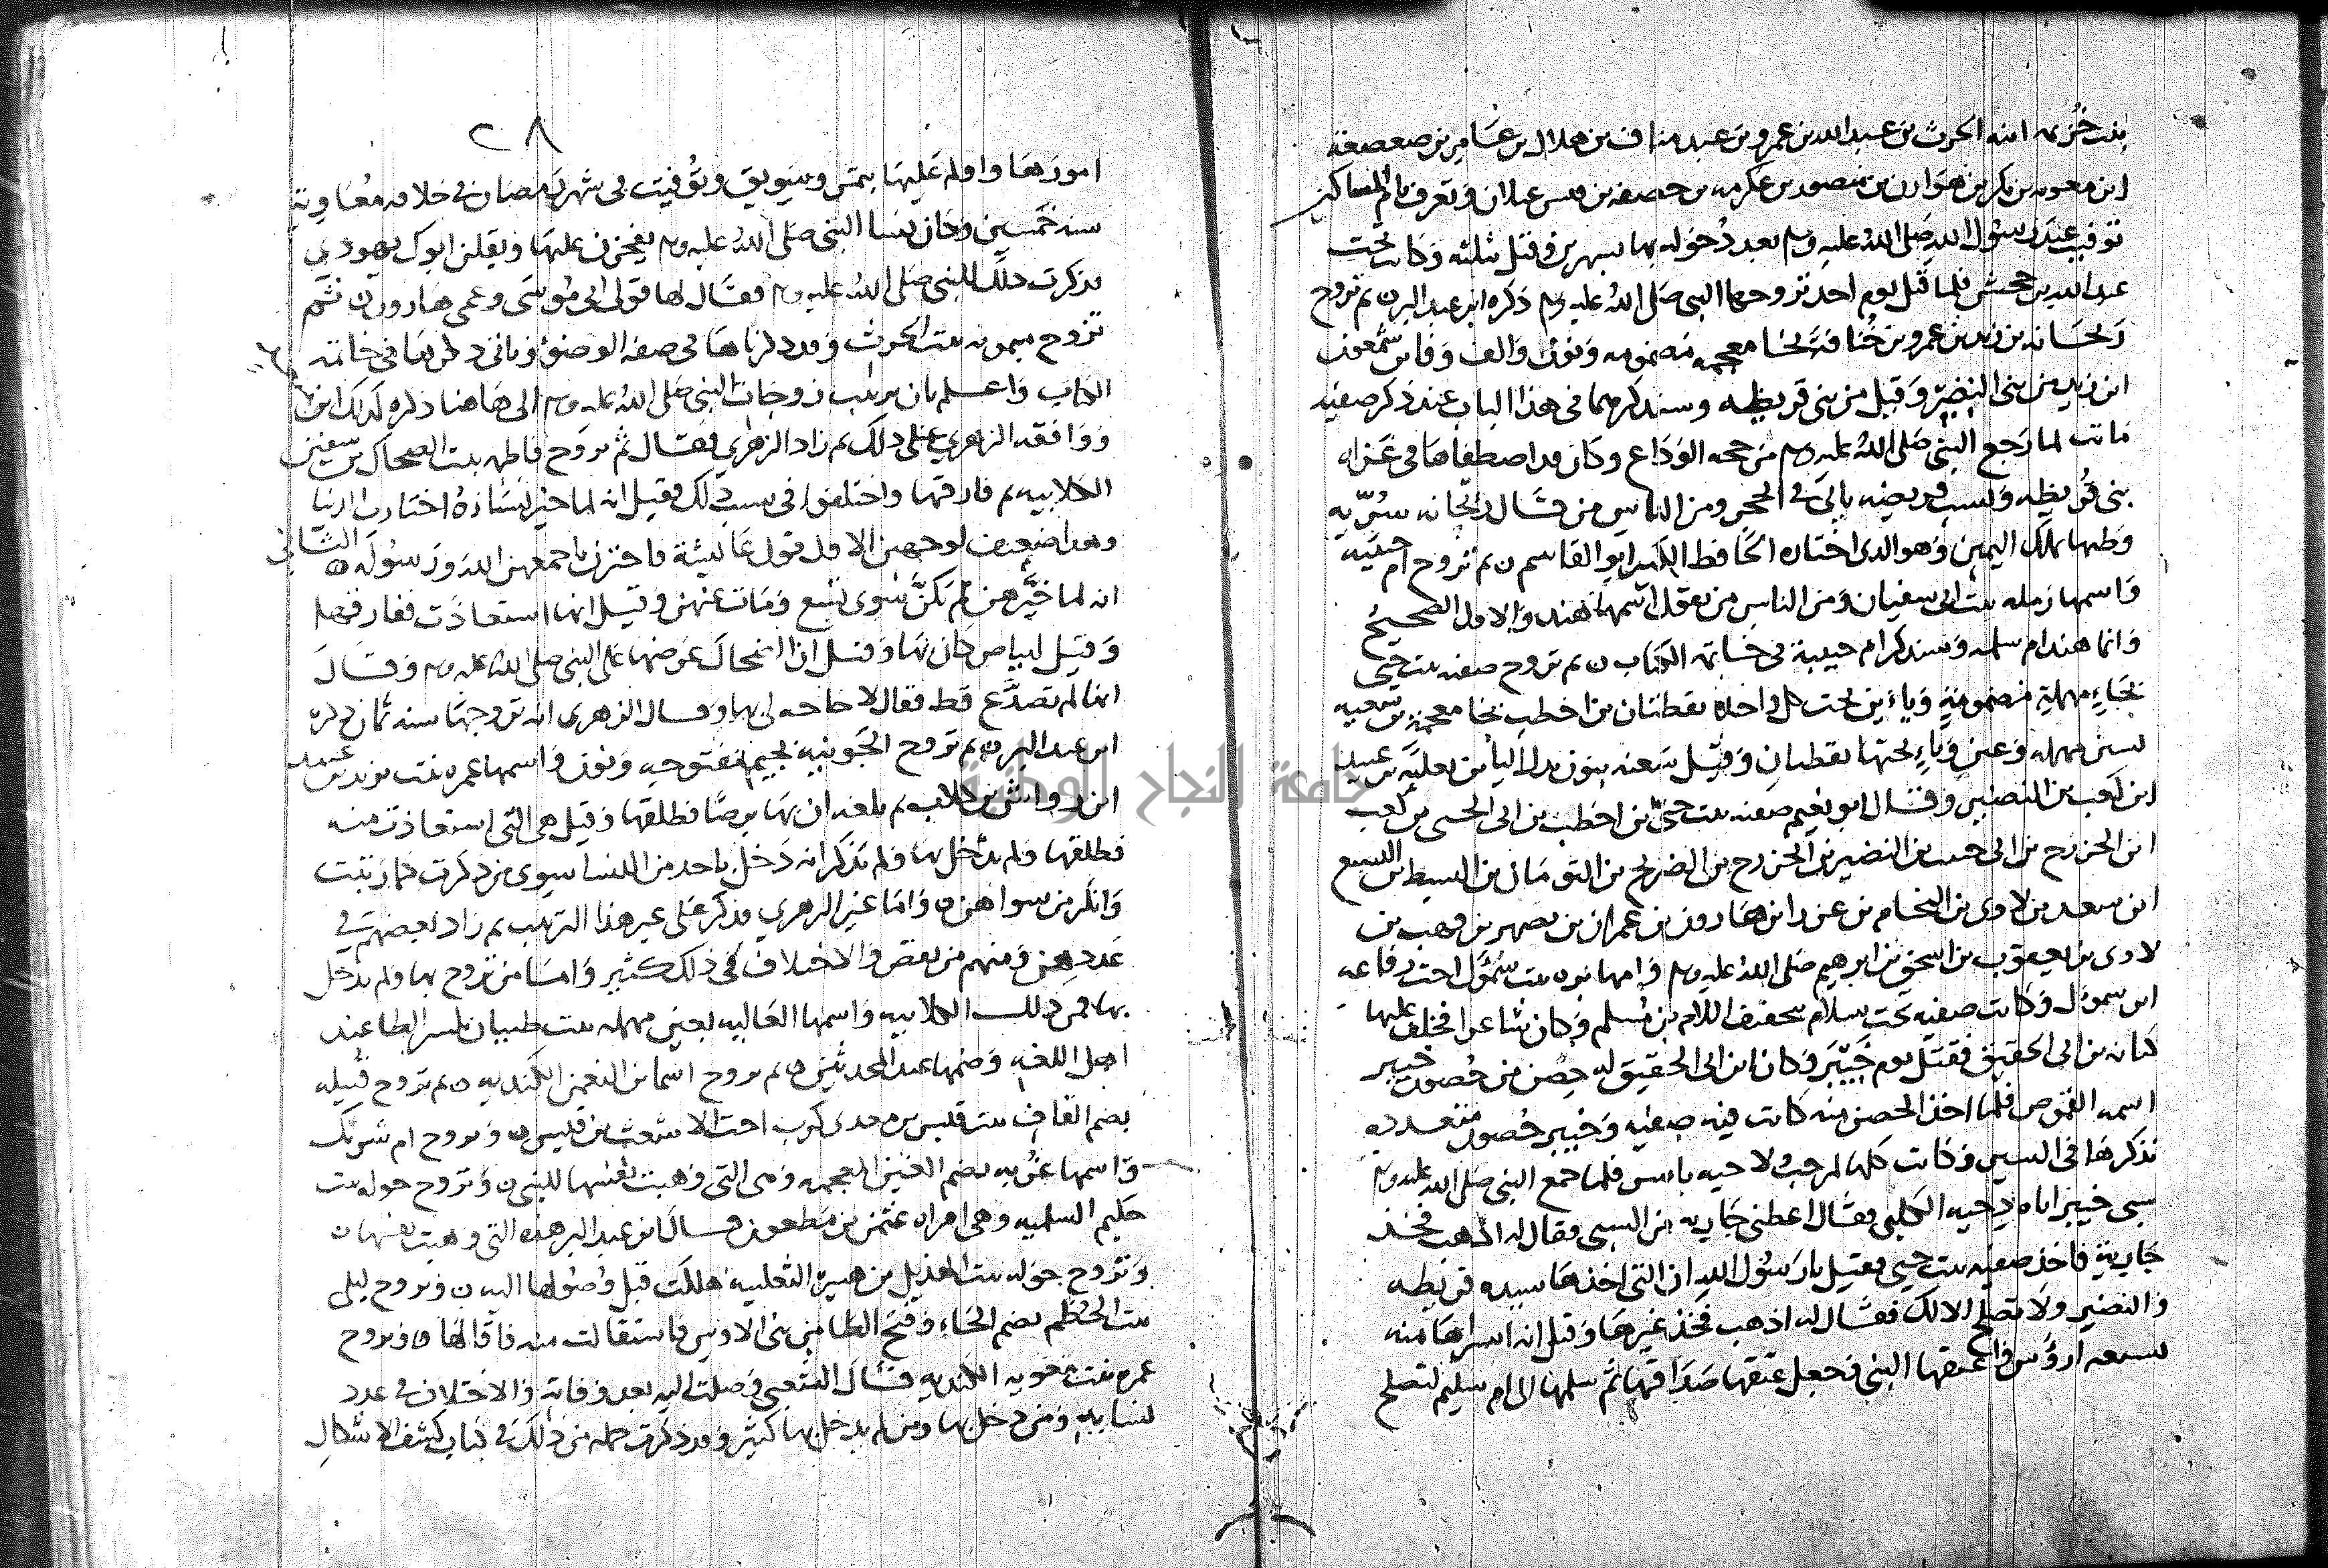 بنت خزيمه ابنه الحرث بن عبد الله بن عمرو بن عبد مناف بن هلال بن عامر بن صعصعة
ابن معويه بن بكر بن هوازن بن منصور بن عكرمه بن خصفه بن قيس عيلان وتعرف بام المساكين
توفيت عند رسول الله صلى الله عليه وسلم بعد دخوله بها بشهرين وقيل ثلثه وكانت تحت
عبد الله بن جحش فلما قتل يوم احد تزوجها النبي صلى الله عليه وسلم ذكره ابن عبد البر ن ثم تزوج
ريحانه بن زيد بن عمرو بن خنافة بخا معجمه مضمومه ونون والف وفا بن شمعون
ابن زيد من بني النضير وقيل من بني قريظه وسنذكرهما في هذا الباب عند ذكر صفيه
ماتت لما رجع النبي صلى الله عليه وسلم من حجه الوداع وكان قد اصطفاها في غزاه
بني قريظه ونسب قريضه ياتي في الحجر ومن الناس من قال ريحانه سرية
وطيها بملك اليمين وهو الذي اختاره الحافظ الكبير ابو القاسم ن ثم تزوج ام حبيبه
واسمها رمله بنت ابي سفيان ومن الناس من يقول اسمها هند والاول الصحيح
وانما هند ام سلمه وسنذكر ام حبيبة في خاتمه الكتاب ن ثم تزوج صفيه بنت حيي
بحاء مهملة مضمومة وياءين تحت كل واحده نقطتان بن اخطب بخا معجمة بن سعيه
بسين مهمله وعين وياء تحتها نقطتان وقيل سعنه بنون بدل اليا بن ثعلبه بن عبيد
ابن كعب بن النضير وقال ابو نعيم صفيه بنت حيي بن اخطب بن ابي الحسى بن كعب
ابن الخزرج بن ابي حبيب بن النضير بن الخزرج بن الضريح بن التومان بن السبط بن اليسع
ابن سعد بن لاوى بن النحام بن عزرا بن هارون بن عمران بن يصهر بن وهب بن
لاوى بن يعقوب بن اسحق بن ابرهيم صلى الله عليه وسلم وامها بره بنت سموال اخت رفاعه
ابن سموال وكانت صفيه تحت سلام بتخفيف اللام بن مسلم وكان شاعرا فخلف عليها
كنانه بن ابي الحقيق فقتل يوم خيبر وكان ابن ابي الحقيق له حصن من حصون خيبر
اسمه القموص فلما اخذ الحصن منه كانت فيه صفيه وخيبر حصون متعدده
نذكرها في السير وكانت كلها لمرحب ولاخيه ياسر فلما جمع النبي صلى الله عليه وسلم
سبي خيبر اتاه دحيه الكلبي فقال اعطني جاريه من السبي فقال له اذهب فخذ
جارية فاخذ صفيه بنت حيي فقيل يا رسول الله ان التي اخذها سيده قريظه
والنضير ولا تصلح الا لك فقال له اذهب فخذ غيرها وقيل انه اشتراها منه
بسبعه ارؤس فاعتقها النبي فجعل عتقها صداقها ثم سلمها الى ام سليم لتصلح
٢٨
امورها واولم عليها بتمر وسويق وتوفيت في شهر رمضان في خلافه معاوية
سنه خمسين وكان نسا النبي صلى الله عليه وسلم يفخرن عليها ويقلن ابوك يهودي
فذكرت ذلك للنبي صلى الله عليه وسلم فقال لها قولي ابي موسى وعمي هارون ن ثم
تزوج ميمونه بنت الحرث وقد ذكرناها في صفه الوضوء وياتي ذكرها في خاتمه
الكتاب واعلم بان ترتيب زوجات النبي صلى الله عليه وسلم الى هاهنا ذكره كذلك ابن
ووافقه الزهري على ذلك ثم زاد الزهري فقال ثم تزوج فاطمه بنت الضحاك بن سفين
الكلابيه ثم فارقها واختلفوا في سبب ذلك فقيل انه لما خير نساءه اختارت الدنيا
وهذا ضعيف لوجهين الاول قول عائشة فاخترن باجمعهن الله ورسوله ن الثاني
انه لما خيرهن لم يكن سوى تسع ومات عنهن وقيل انها استعاذت ففارقها
وقيل لبياض كان بها وقيل ان الضحاك عرضها على النبي صلى الله عليه وسلم وقال
انها لم تصدع قط فقال لا حاجه لي بها وقال الزهري انه تزوجها سنه ثمان ذكره
ابن عبد البر ن ثم تزوج الجونيه بجيم مفتوحه ونون واسمها عمره بنت يزيد بن عبيد
ابن رواش بن كلاب ثم بلغه ان بها برصا فطلقها وقيل هي التي استعاذت منه
فطلقها ولم يدخل بها ولم يذكر انه دخل باحد من النسا سوى من ذكرت كما رتبت
وانكر من سواهن ن واما غير الزهري فذكر على غير هذا الترتيب ثم زاد بعضهم في
عددهن ومنهم من نقص والاختلاف في ذلك كثير واما من تزوج بها ولم يدخل
بها فمن ذلك الكلابيه واسمها العاليه بعين مهمله بنت ظبيان بكسر الظا عند
اهل اللغه وضمها عند المحدثين ن ثم تزوج اسما بن النعمن الكنديه ن ثم تزوج قتيله
بضم القاف بنت قيس بن معدي كرب اخت الاشعث بن قيس ن وتزوج ام شريك
واسمها غزيه بضم الغين المعجمه وهي التي وهبت نفسها للنبي ن وتزوج خوله بنت
حكيم السلميه وهي امراه عثمن بن مظعون قال ابن عبد البر هذه التي وهبت نفسها ن
وتزوج خوله بنت الهذيل بن هبيره الثعلبيه هلكت قبل وصولها اليه ن وتزوج ليلى
بنت الخطيم بضم الخاء وفتح الطا من بني الاوس فاستقالت منه فاقالها ن وتزوج
عمره بنت معويه الكنديه قال الشعبي وصلت اليه بعد وفاته والاختلاف في عدد
نسايه ومن دخل بها ومن لم يدخل بها كثير وقد ذكرت جمله من ذلك في كتاب كشف الاشكال